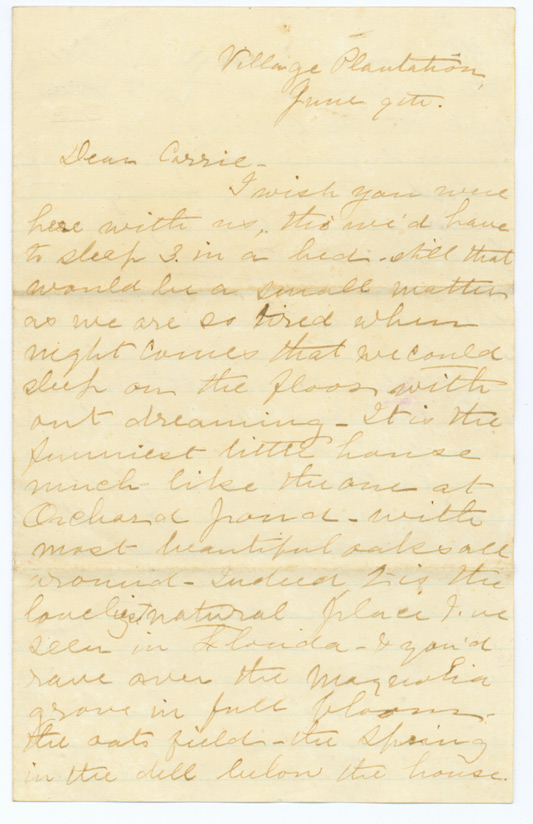 Village Plantation,
June 9th.
Dear Carrie -
I wish you were
here with us, tho' we'd have
to sleep 3. in a bed - still that
would be a small matter
as we are so tired when
night comes that we could
sleep on the floor with
out dreaming - It is the
funniest little house
much like the one at
Orchard pond - with
most beautiful oaks all
around - Indeed it is the
loveliest natural place I've
seen in Florida - & you'd
rave over the Magnolia
grove in full bloom -
the oats field - the spring
in the dell below the house.